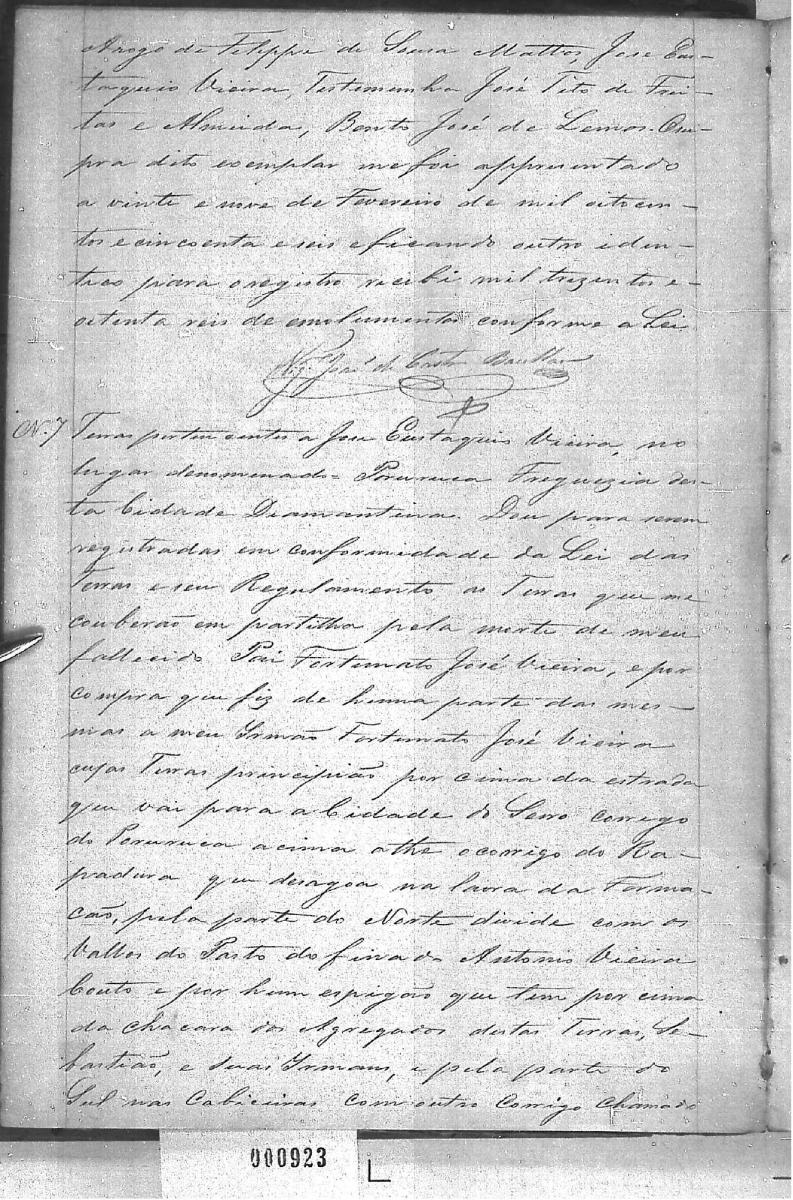 Arogo de Felippe de Sousa Mattos, Jose Eus-
taquio Vieira, Testemunha José Tito de Frei-
tas e Almeida, Bento José de Lemos. Cu-
pra dito exemplar me foi appresentado
a vinte e nove de Fevereiro de mil oitocen-
tos e cincoenta e seis e ficando outro iden-
tico para o registro recebi mil trezentos e
oitenta reis de emolumentos conforme a Lei
Vigº José de Castro
N. 7 Terras pertencentes a Jose Eustaquio Vieira, no
lugar denomenado Pururuca Freguezia des-
ta Cidade Diamantina. Dou para serem
registradas em conformidade da Lei das
Terras e seu Regulamento, as Terras que me
couberão em partilha pela morte de meu
fallecido Pai Fortunato José Vieira, e por
compra que fiz de huma parte das mes-
mas a meu Irmão Fortunato José Vieira
cujas Terras principião por cima da estrada
que vai para a Cidade do Serro corrego
do Pururuca acima athe o corrigo do Ra-
padura que desagoa na lavra da Forma-
cão, pela parte do Norte divide com os
Vallos do Pasto do finado Antonio Vieira
Couto e por hum espigão que tem por cima
da Chacara dos Agregados destas Terras, Se-
bastião, e suas Irmans, e pela parte do
Sul nas Cabiceiras com outro Corrigo chamado
000923